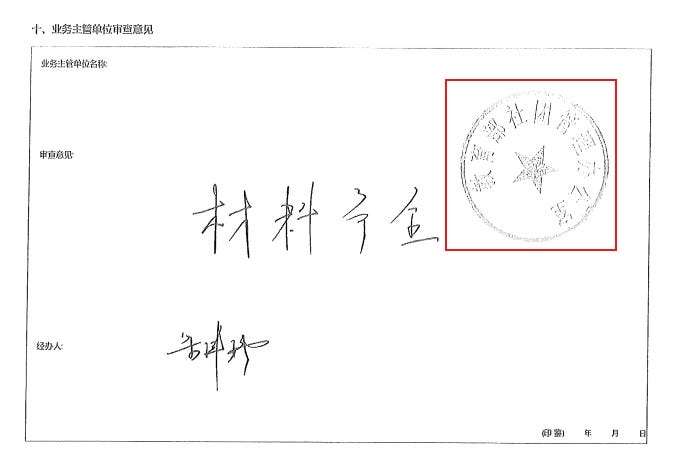 十、业务主管单位审查意见
业务主管单位名称:
教育部社团管理办公室
审查意见:
材料齐全
经办人:
(印鉴) 年 月 日